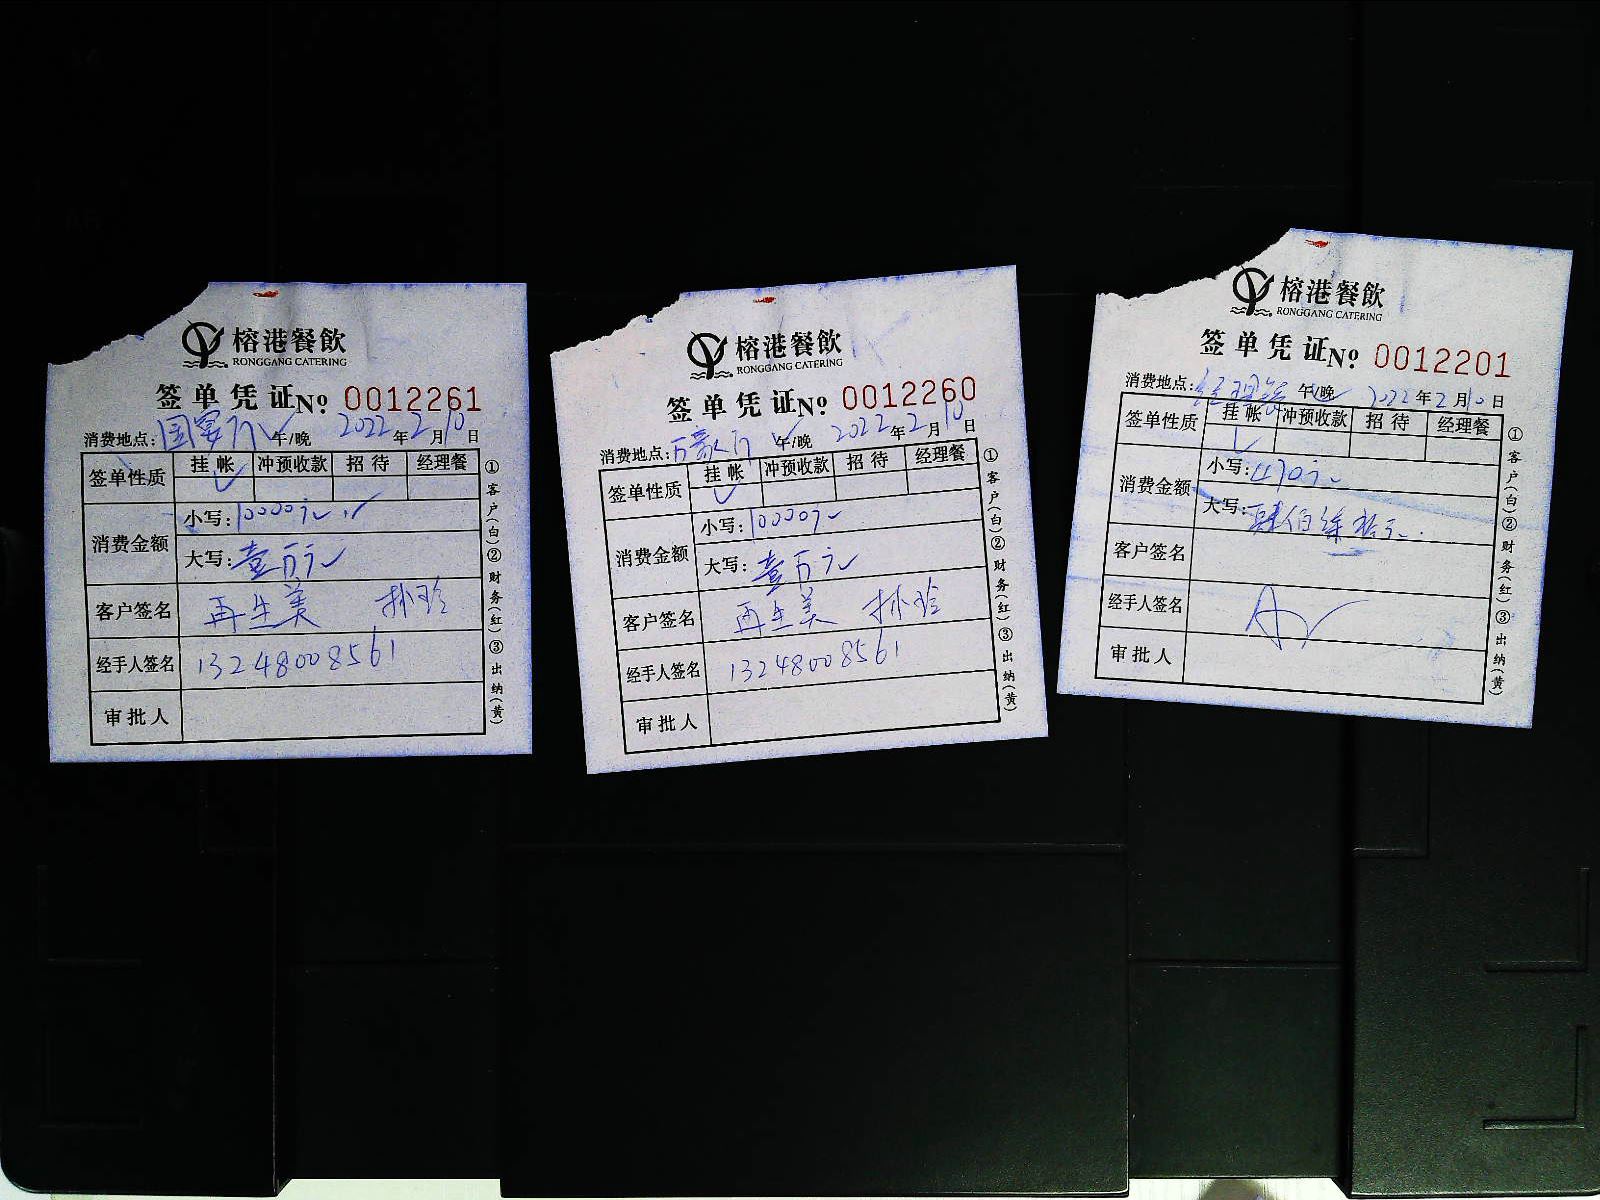 榕港餐飲
RONGGANG CATERING
签单凭证 No 0012261
消费地点: 国宴厅 午/晚 2022年2月10日
签单性质 挂帐 冲预收款 招待 经理餐
消费金额 小写: 10000元
大写: 壹万元
客户签名 再生美
经手人签名 13248008561
审批人
①客户(白)②财务(红)③出纳(黄)
榕港餐飲
RONGGANG CATERING
签单凭证 No 0012260
消费地点: 万豪厅 午/晚 2022年2月10日
签单性质 挂帐 冲预收款 招待 经理餐
消费金额 小写: 10000元
大写: 壹万元
客户签名 再生美
经手人签名 13248008561
审批人
①客户(白)②财务(红)③出纳(黄)
榕港餐飲
RONGGANG CATERING
签单凭证 No 0012201
消费地点: 经理餐 午/晚 2022年2月10日
签单性质 挂帐 冲预收款 招待 经理餐
消费金额 小写: 470元
大写: 肆佰柒拾元
客户签名
经手人签名
审批人
①客户(白)②财务(红)③出纳(黄)